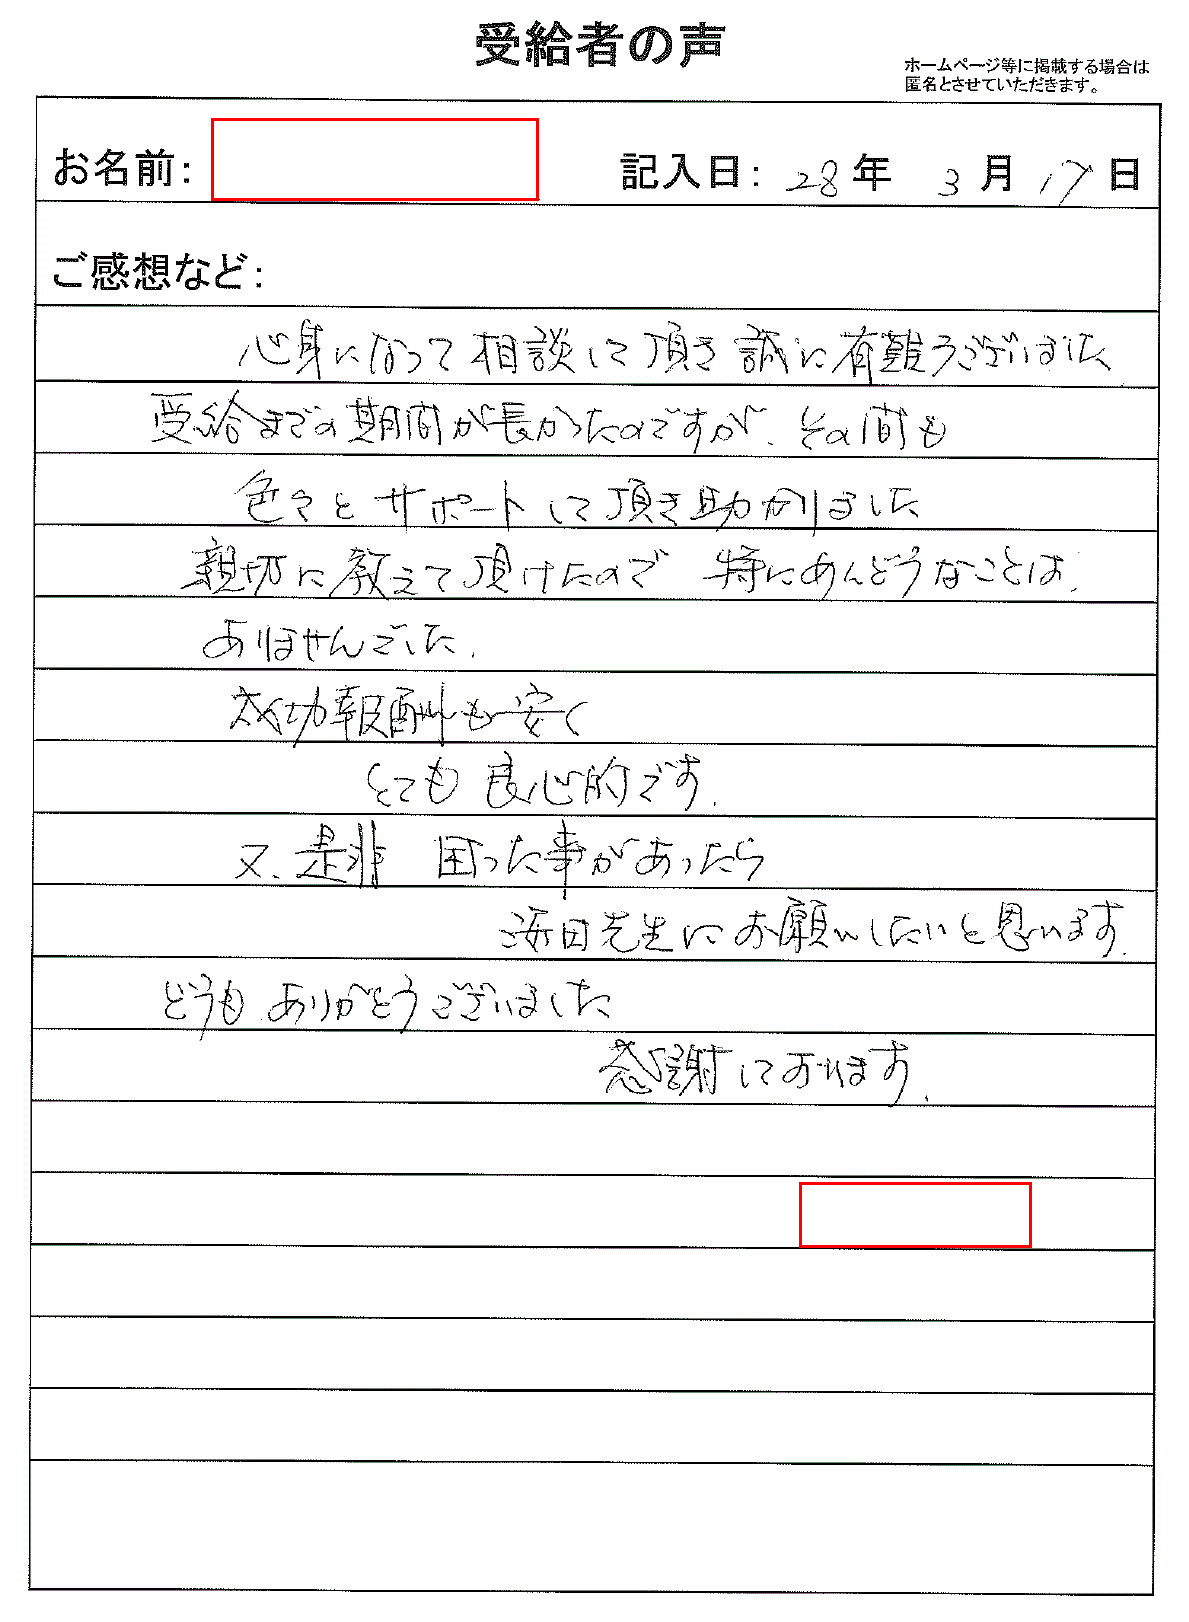 受給者の声
ホームページ等に掲載する場合は
匿名とさせていただきます。
お名前：
記入日： 28年 3月 17日
ご感想など：
心身になって相談して頂き誠に有難うございました
受給までの期間が長かったのですが、その間も
色々とサポートして頂き助かりました
親切に教えて頂けたので 特にめんどうなことは、
ありませんでした。
成功報酬も安く
とても良心的です。
又、是非 困った事があったら
田先生にお願いしたいと思います。
どうもありがとうございました
感謝しております。